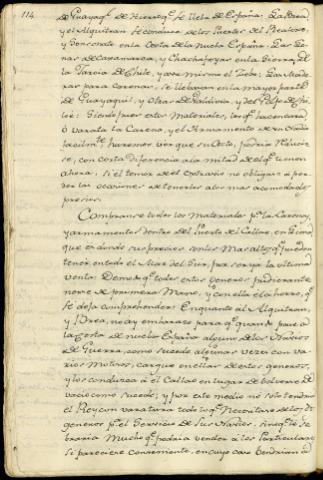 114
de Guayaq.l de Hierro q.e se lleba de España: La Brea,
y el Alquitran se conduce de los Puertos del Realexo,
y Sonsonate en la Costa de la Nueva España: Las Lo-
nas de Caxamarca, y Chachapoyas en la Sierra, de
la Jarcia de Chile, y asi mismo el Sebo: Las Made-
ras para Corenar, se llebavan en la mayor parte
de Guayaquil, y otras de Valdivia, y del Golfo de Chi-
loè: Siendo pues estos Materiales, los q.e hacen cara,
ò varata la Carena, y el Armamento de un Navio
facilm.te haremos ver que su Costo, podria reducir-
se, con corta diferencia a la mitad de el q.e tienen
ahora; si el temor de el extravio no obligara a per-
der las ocasiones de tenerlos a los mas acomodados
precios.
Compranse todos los Materiales p.a las Carenas,
y armamentos dentro del Puerto de el Callao, en Lima
que es donde sus precios son los Mas altos q.e pueden
tener en todo el Mar del Sur, por ser ya la ultima
venta: Demas q.e todos estos generos pudieran te-
nerse de primera Mano, y con ella el ahorro, q.e
se deja comprehender: En quanto al Alquitran,
y Brea, no ay embarazo para q.e quando pase a
la Costa de nueva España alguno de los Navios
de Guerra, como sucede algunas veces con va-
rios Motivos, cargue en ellas de estos generos,
y los conduzca à el Callao en lugar de bolverse de
vacio como sucede; y por este medio no solo tendria
el Rey con varatura todo lo q.e Necesitare de los d.hos
generos p.a el Servicio de sus Navios, sino q.e le so-
braria Mucho q.e podria vender à los Particulares
si pareciere conveniente, en cuyo caso vendrian à